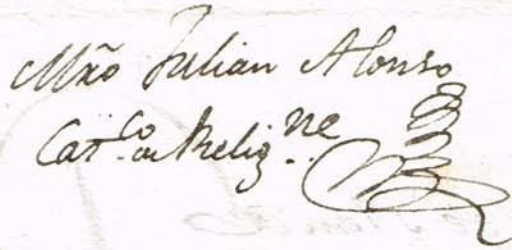 Mrõ Julian Alonso
Cat.co de Relig.ne